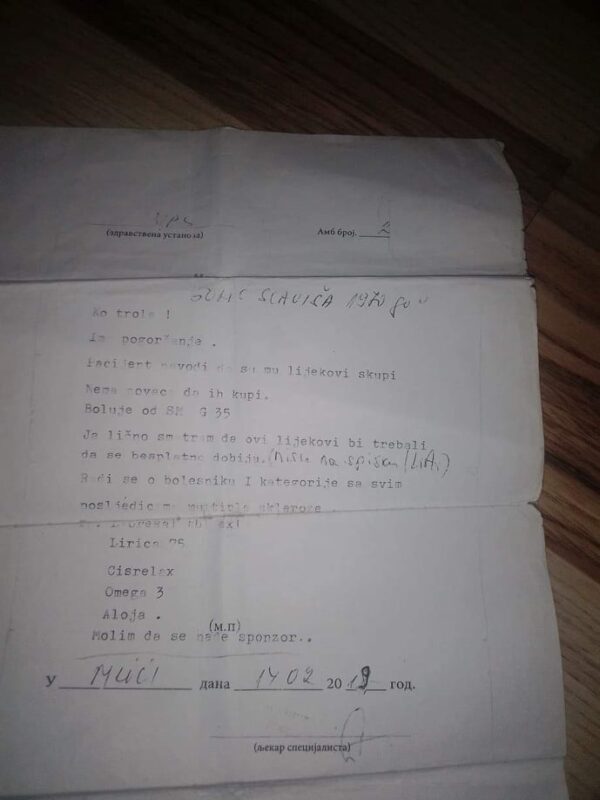 (здравствена установа)
Амб број. 2
SLAVIŠA 1970 god
Ko trola !
Ima pogoršanje .
Pacijent navodi da su mu lijekovi skupi
Nema novaca da ih kupi.
Boluje od SM G 35
Ja lično smatram da ovi lijekovi bi trebali
da se besplatno dobiju. (Nisu na spisku
Radi se o bolesniku I kategorije sa svim
posljedicama multiple skleroze .
Lirica 75
Cisrelax
Omega 3
Aloja .
(м.п)
Molim da se nađe sponzor..
У дана 14 02 2019 год.
(љекар специјалиста)